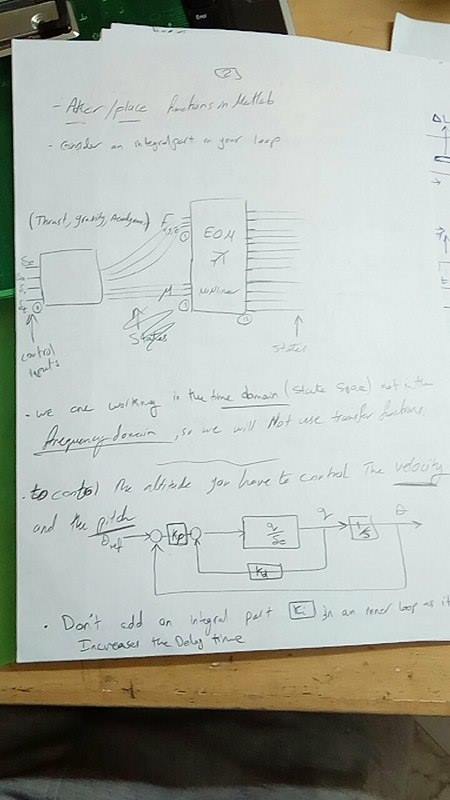 ②
- Aker/place functions in Matlab
- Consider an integral part in your loop
(Thrust, gravity, Aerodynamic)
F
EOM
M
States
control
inputs
states
- we are working in the time domain (state space) not in the
frequency domain, so we will Not use transfer functions.
- to control the altitude you have to control The velocity
and the pitch
θref
Kp
q/δe
q
1/s
θ
Kd
• Don't add an integral part Ki in an inner loop as it
Increases the Delay time